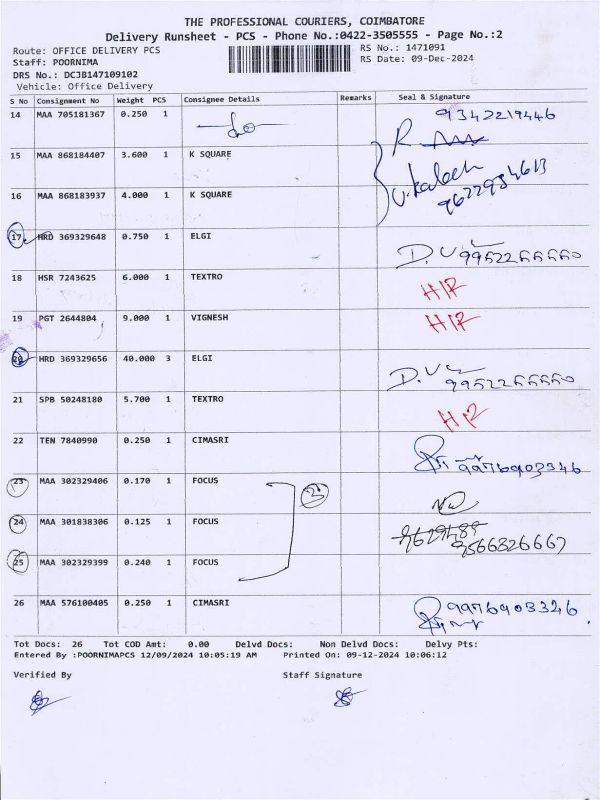 THE PROFESSIONAL COURIERS, COIMBATORE
Delivery Runsheet - PCS - Phone No.:0422-3505555 - Page No.:2
Route: OFFICE DELIVERY PCS RS No.: 1471091
Staff: POORNIMA RS Date: 09-Dec-2024
DRS No.: DCJB147109102
Vehicle: Office Delivery
S No Consignment No Weight PCS Consignee Details Remarks Seal & Signature
14 MAA 705181367 0.250 1 9342219446
15 MAA 868184407 3.600 1 K SQUARE
16 MAA 868183937 4.000 1 K SQUARE
17 HRD 369329648 0.750 1 ELGI
18 HSR 7243625 6.000 1 TEXTRO H/R
19 PGT 2644804 9.000 1 VIGNESH H/R
20 HRD 369329656 40.000 3 ELGI
21 SPB 50248180 5.700 1 TEXTRO H/R
22 TEN 7840990 0.250 1 CIMASRI
23 MAA 302329406 0.170 1 FOCUS
24 MAA 301838306 0.125 1 FOCUS 3
9566826667
25 MAA 302329399 0.240 1 FOCUS
26 MAA 576100405 0.250 1 CIMASRI
Tot Docs: 26 Tot COD Amt: 0.00 Delvd Docs: Non Delvd Docs: Delvy Pts:
Entered By :POORNIMAPCS 12/09/2024 10:05:19 AM Printed On: 09-12-2024 10:06:12
Verified By Staff Signature